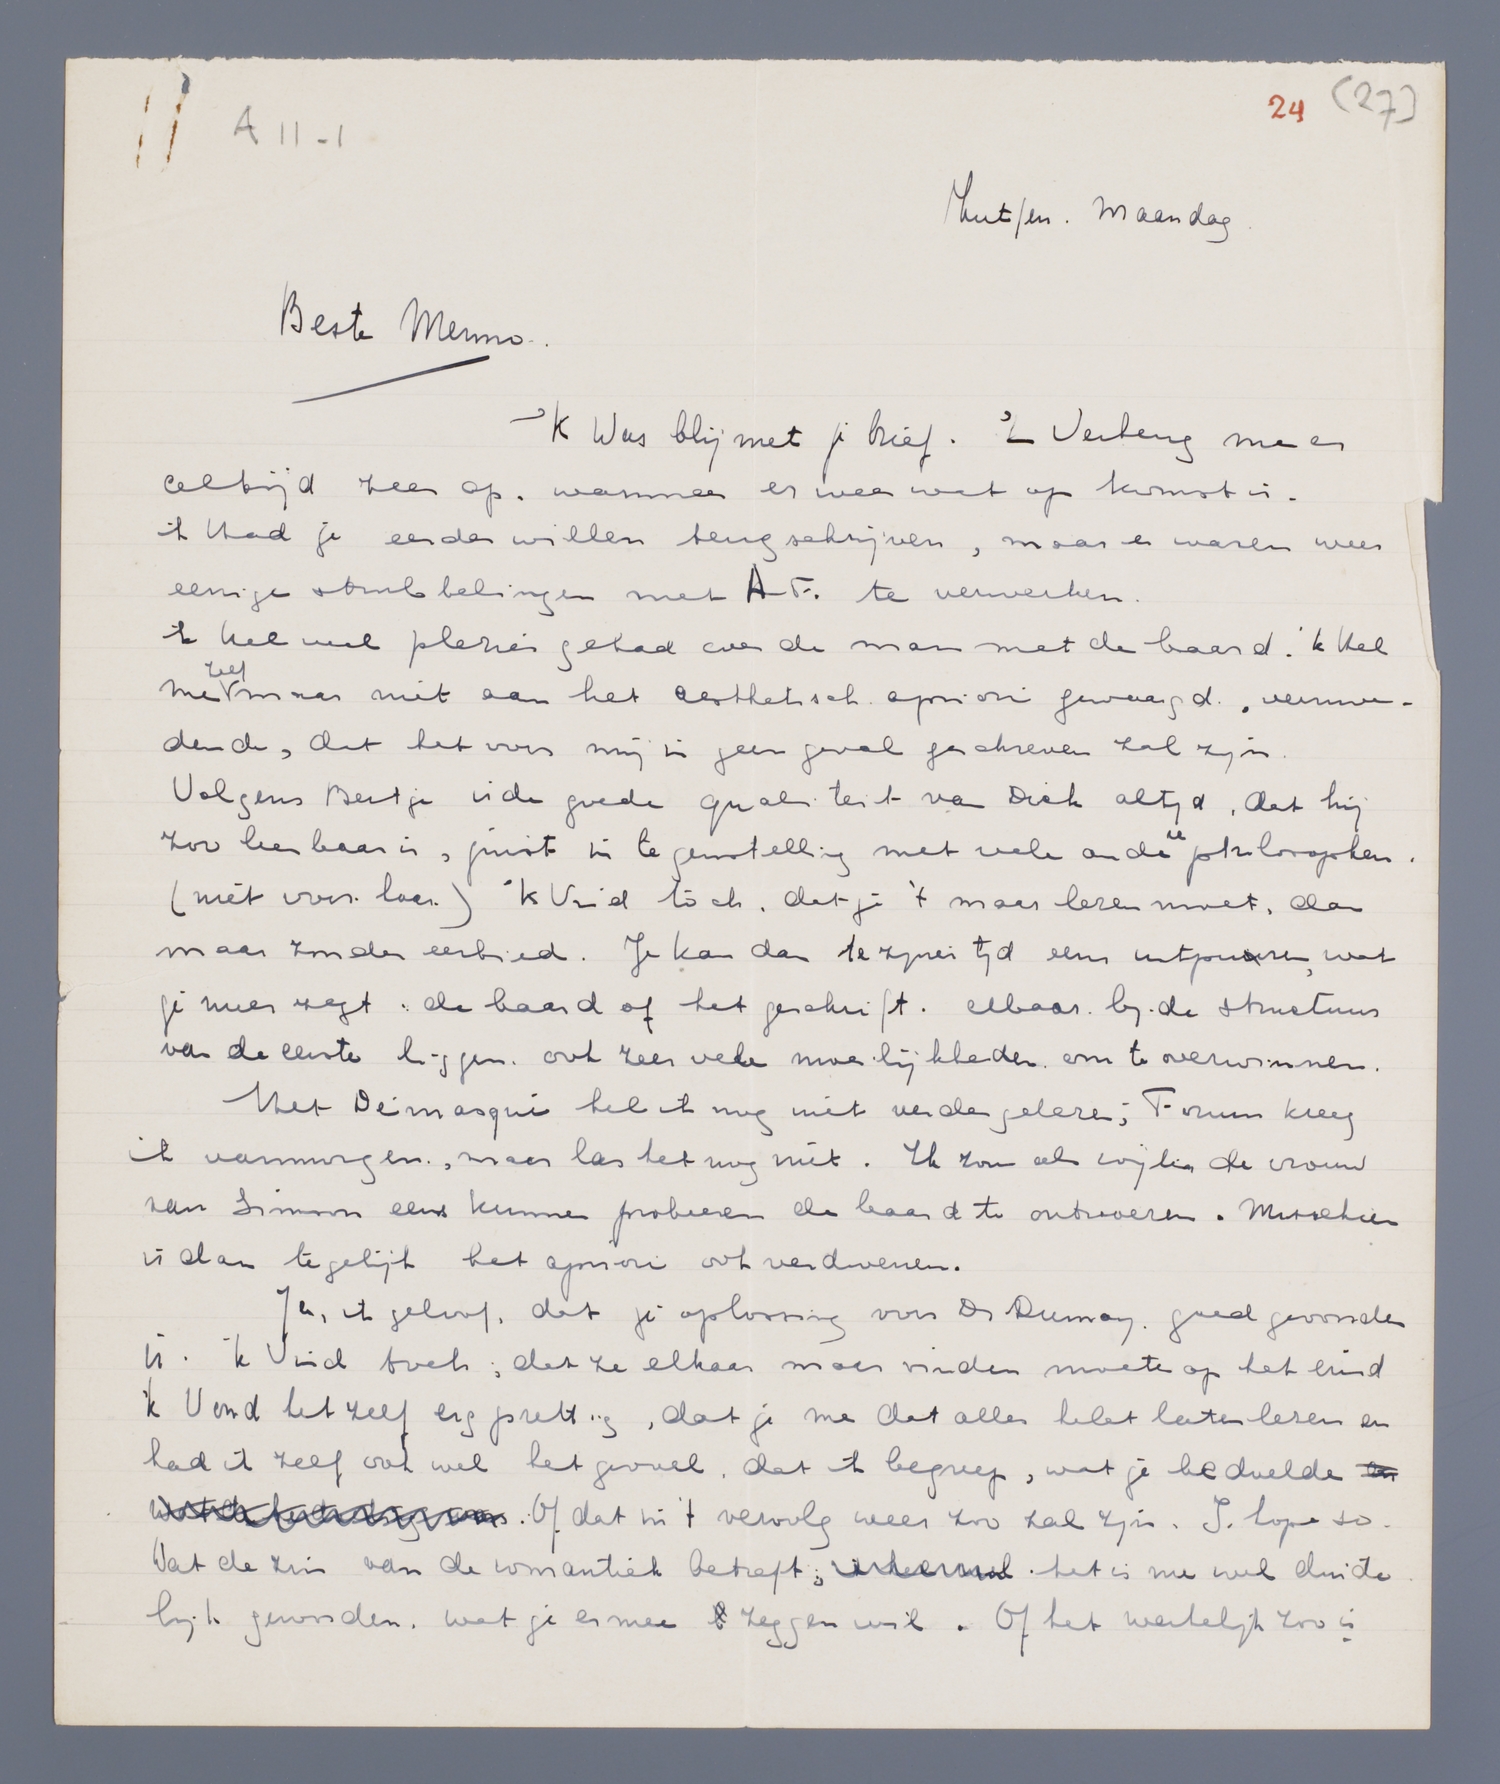 A II-1
24 (27)
Zutfen. Maandag.
Beste Menno.
'k Was blij met je brief. 'k Verheug me er
altijd zeer op, wanneer er weer wat op komst is.
ik Had je eerder willen terugschrijven, maar er waren weer
eenige strubbelingen met A.F. te verwerken.
ik Heb veel plezier gehad over de man met de baard. 'k Heb
me zelf maar niet aan het aesthetisch apriori gewaagd, vermoe-
dende, dat het voor mij in geen geval geschreven zal zijn.
Volgens Bertje is de goede qualiteit van Dick altijd, dat hij
zoo leesbaar is, juist in tegenstelling met vele andere philosophen.
(niet voor haar) 'k Vind toch, dat je 't maar lezen moet, dan
maar zonder eerbied. Je kan dan te zijner tijd eens uitpluizen, wat
je meer zegt: de baard of het geschrift. elbaar. bij de structuur
van de eerste liggen ook zeer vele moeilijkheden om te overwinnen.
Met Démasqué heb ik nog niet verder gelezen; Forum kreeg
ik vanmorgen, maar las het nog niet. Ik zou als wijlen de vrouw
van Simson eens kunnen probeeren de baard te ontroven. Misschien
is dan tegelijk het apriori ook verdwenen.
Ja, ik geloof, dat je oplossing voor Dr Dumay goed geworden
is. 'k Vind toch, dat ze elkaar maar vinden moeten op het eind
'k Vond het zelf erg prettig, dat je me dat alles hebt laten lezen en
had ik zelf ook wel het gevoel, dat ik begreep, wat je bedoelde
. Of dat in 't vervolg weer zoo zal zijn. I hope so.
Wat de zin van de romantiek betreft; het is me wel duide
lijk geworden, wat je ermee zeggen wil. Of het werkelijk zoo is